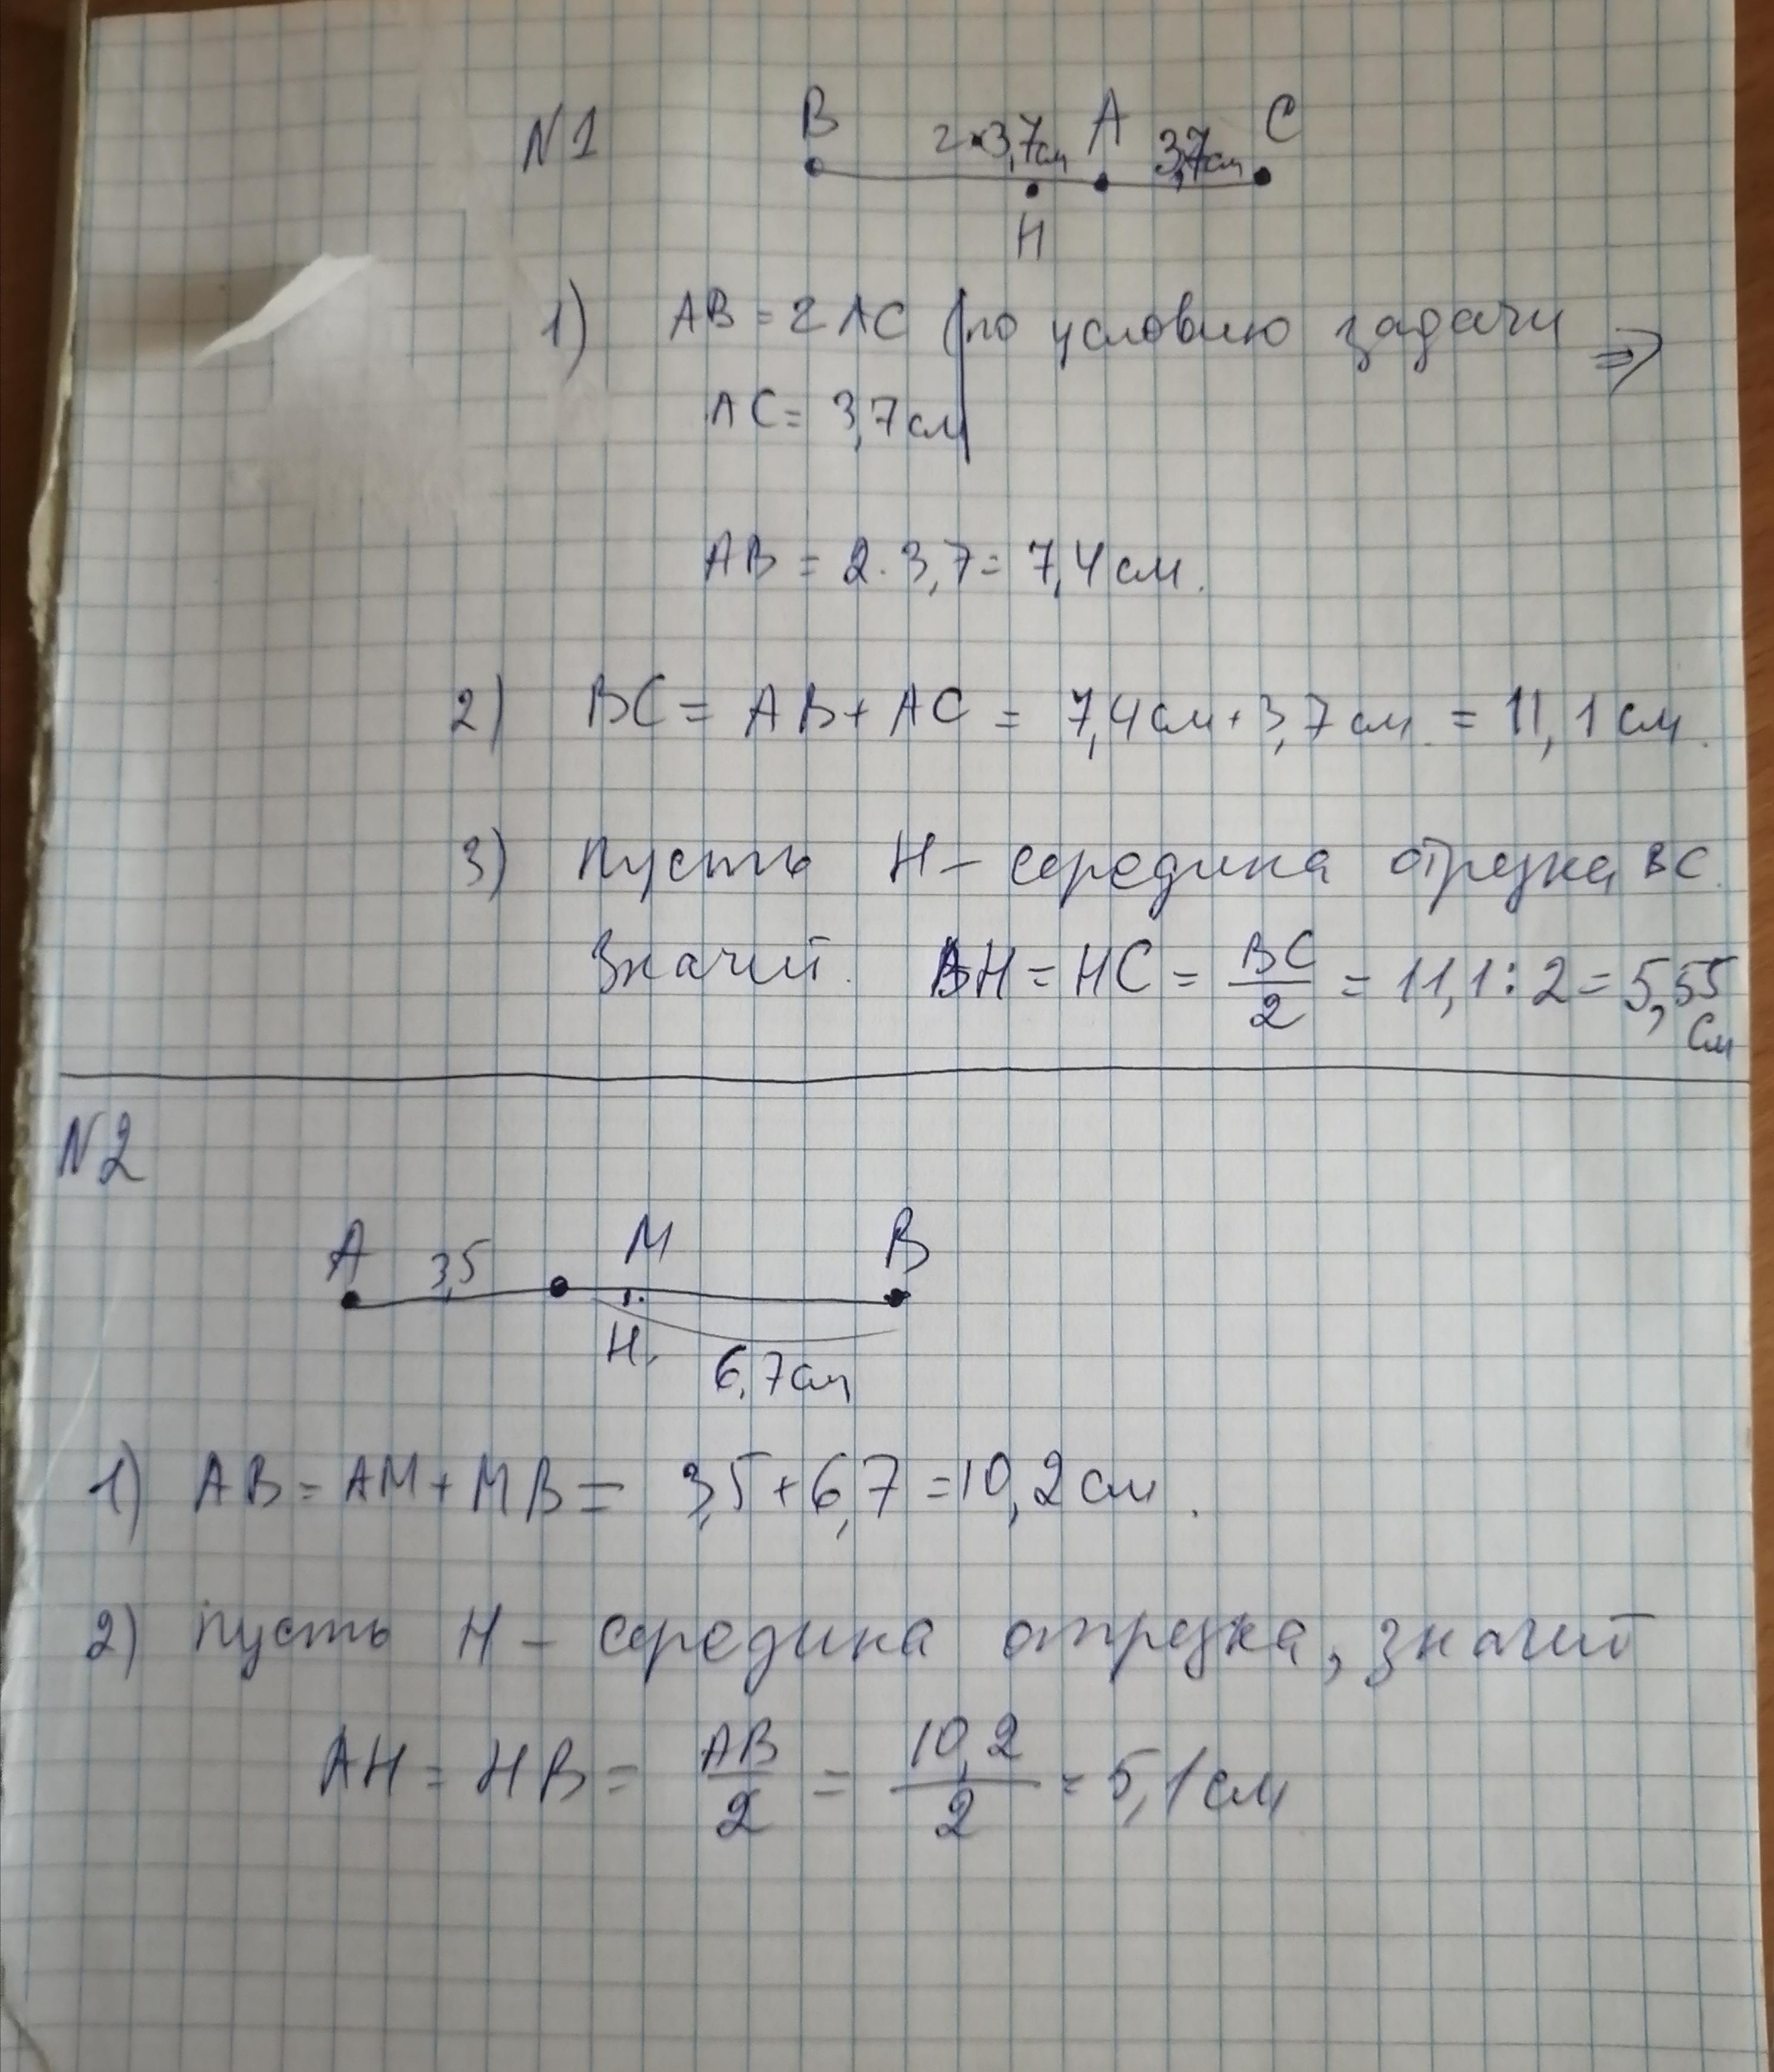 N1
B 2×3,7см A 3,7см C
H
1) AB = 2AC (по условию задачи ⇒
AC = 3,7см
AB = 2·3,7 = 7,4 см.
2) BC = AB + AC = 7,4см + 3,7см. = 11,1 см.
3) пусть H – середина отрезка BC.
Значит. BH = HC = BC/2 = 11,1 : 2 = 5,55
см
N2
A 3,5 M B
H.
6,7см
1) AB = AM + MB = 3,5 + 6,7 = 10,2 см.
2) пусть H – середина отрезка, значит
AH = HB = AB/2 = 10,2/2 = 5,1 см